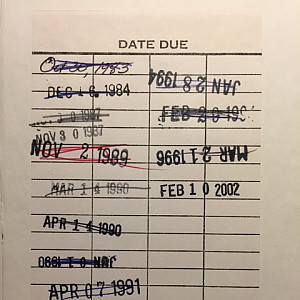 DATE DUE
Oct 30, 1983
DEC 16 1984
NOV 30 1987
NOV 2 1989
MAR 14 1990
APR 14 1990
JAN 01 1990
APR 07 1991
JAN 28 1994
FEB 20
MAR 21 1996
FEB 10 2002